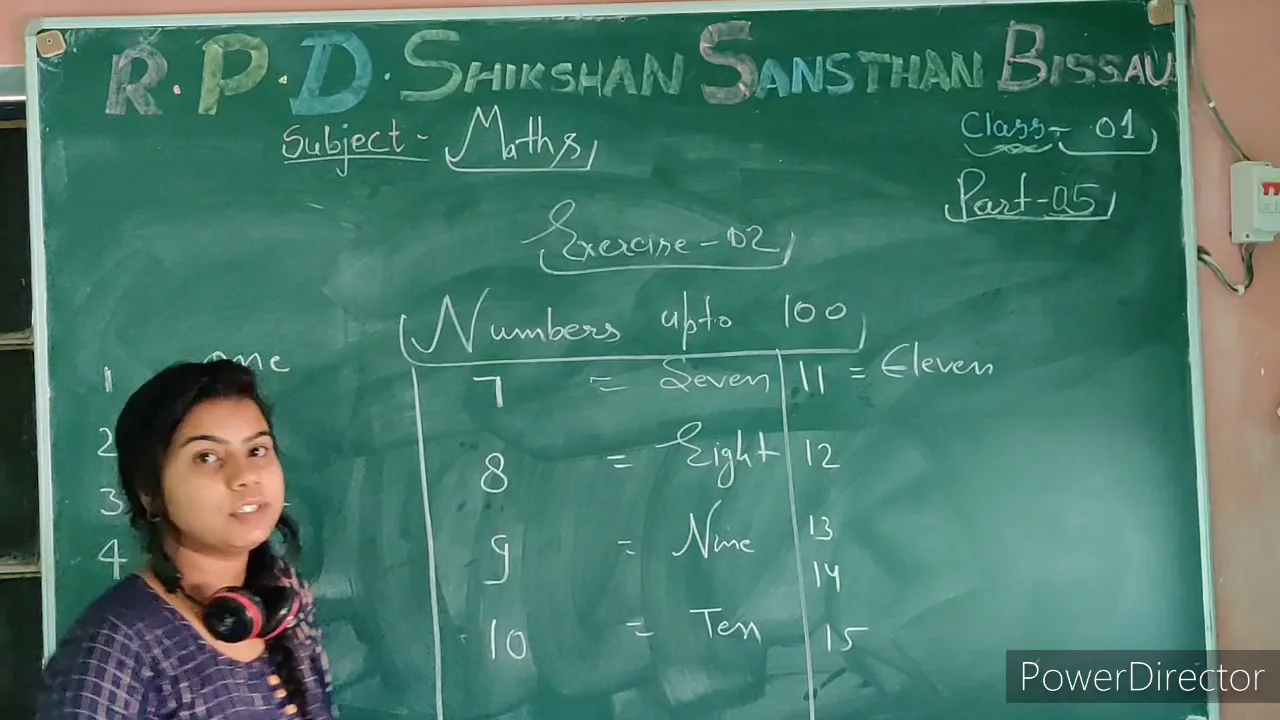 R.P.D. SHIKSHAN SANSTHAN BISSAU
Subject - Maths
Class - 01
Part - 05
Exercise - 02
Numbers upto 100
1 one
2
3
4
7 = Seven
8 = Eight
9 = Nine
10 = Ten
11 = Eleven
12
13
14
15
PowerDirector